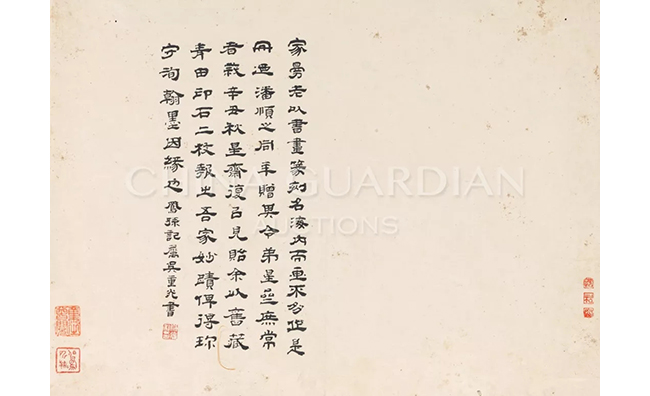 家曼老以書畫篆刻名海内而不是
冊迺潘順之同年贈其令弟星庶常
者辛丑秋星齋復以見貽余以舊藏
青田印石二枚報之吾家妙蹟俾得珎
守洵翰墨因緣也 記屬吳重光書
CHINA GUARDIAN
AUCTIONS